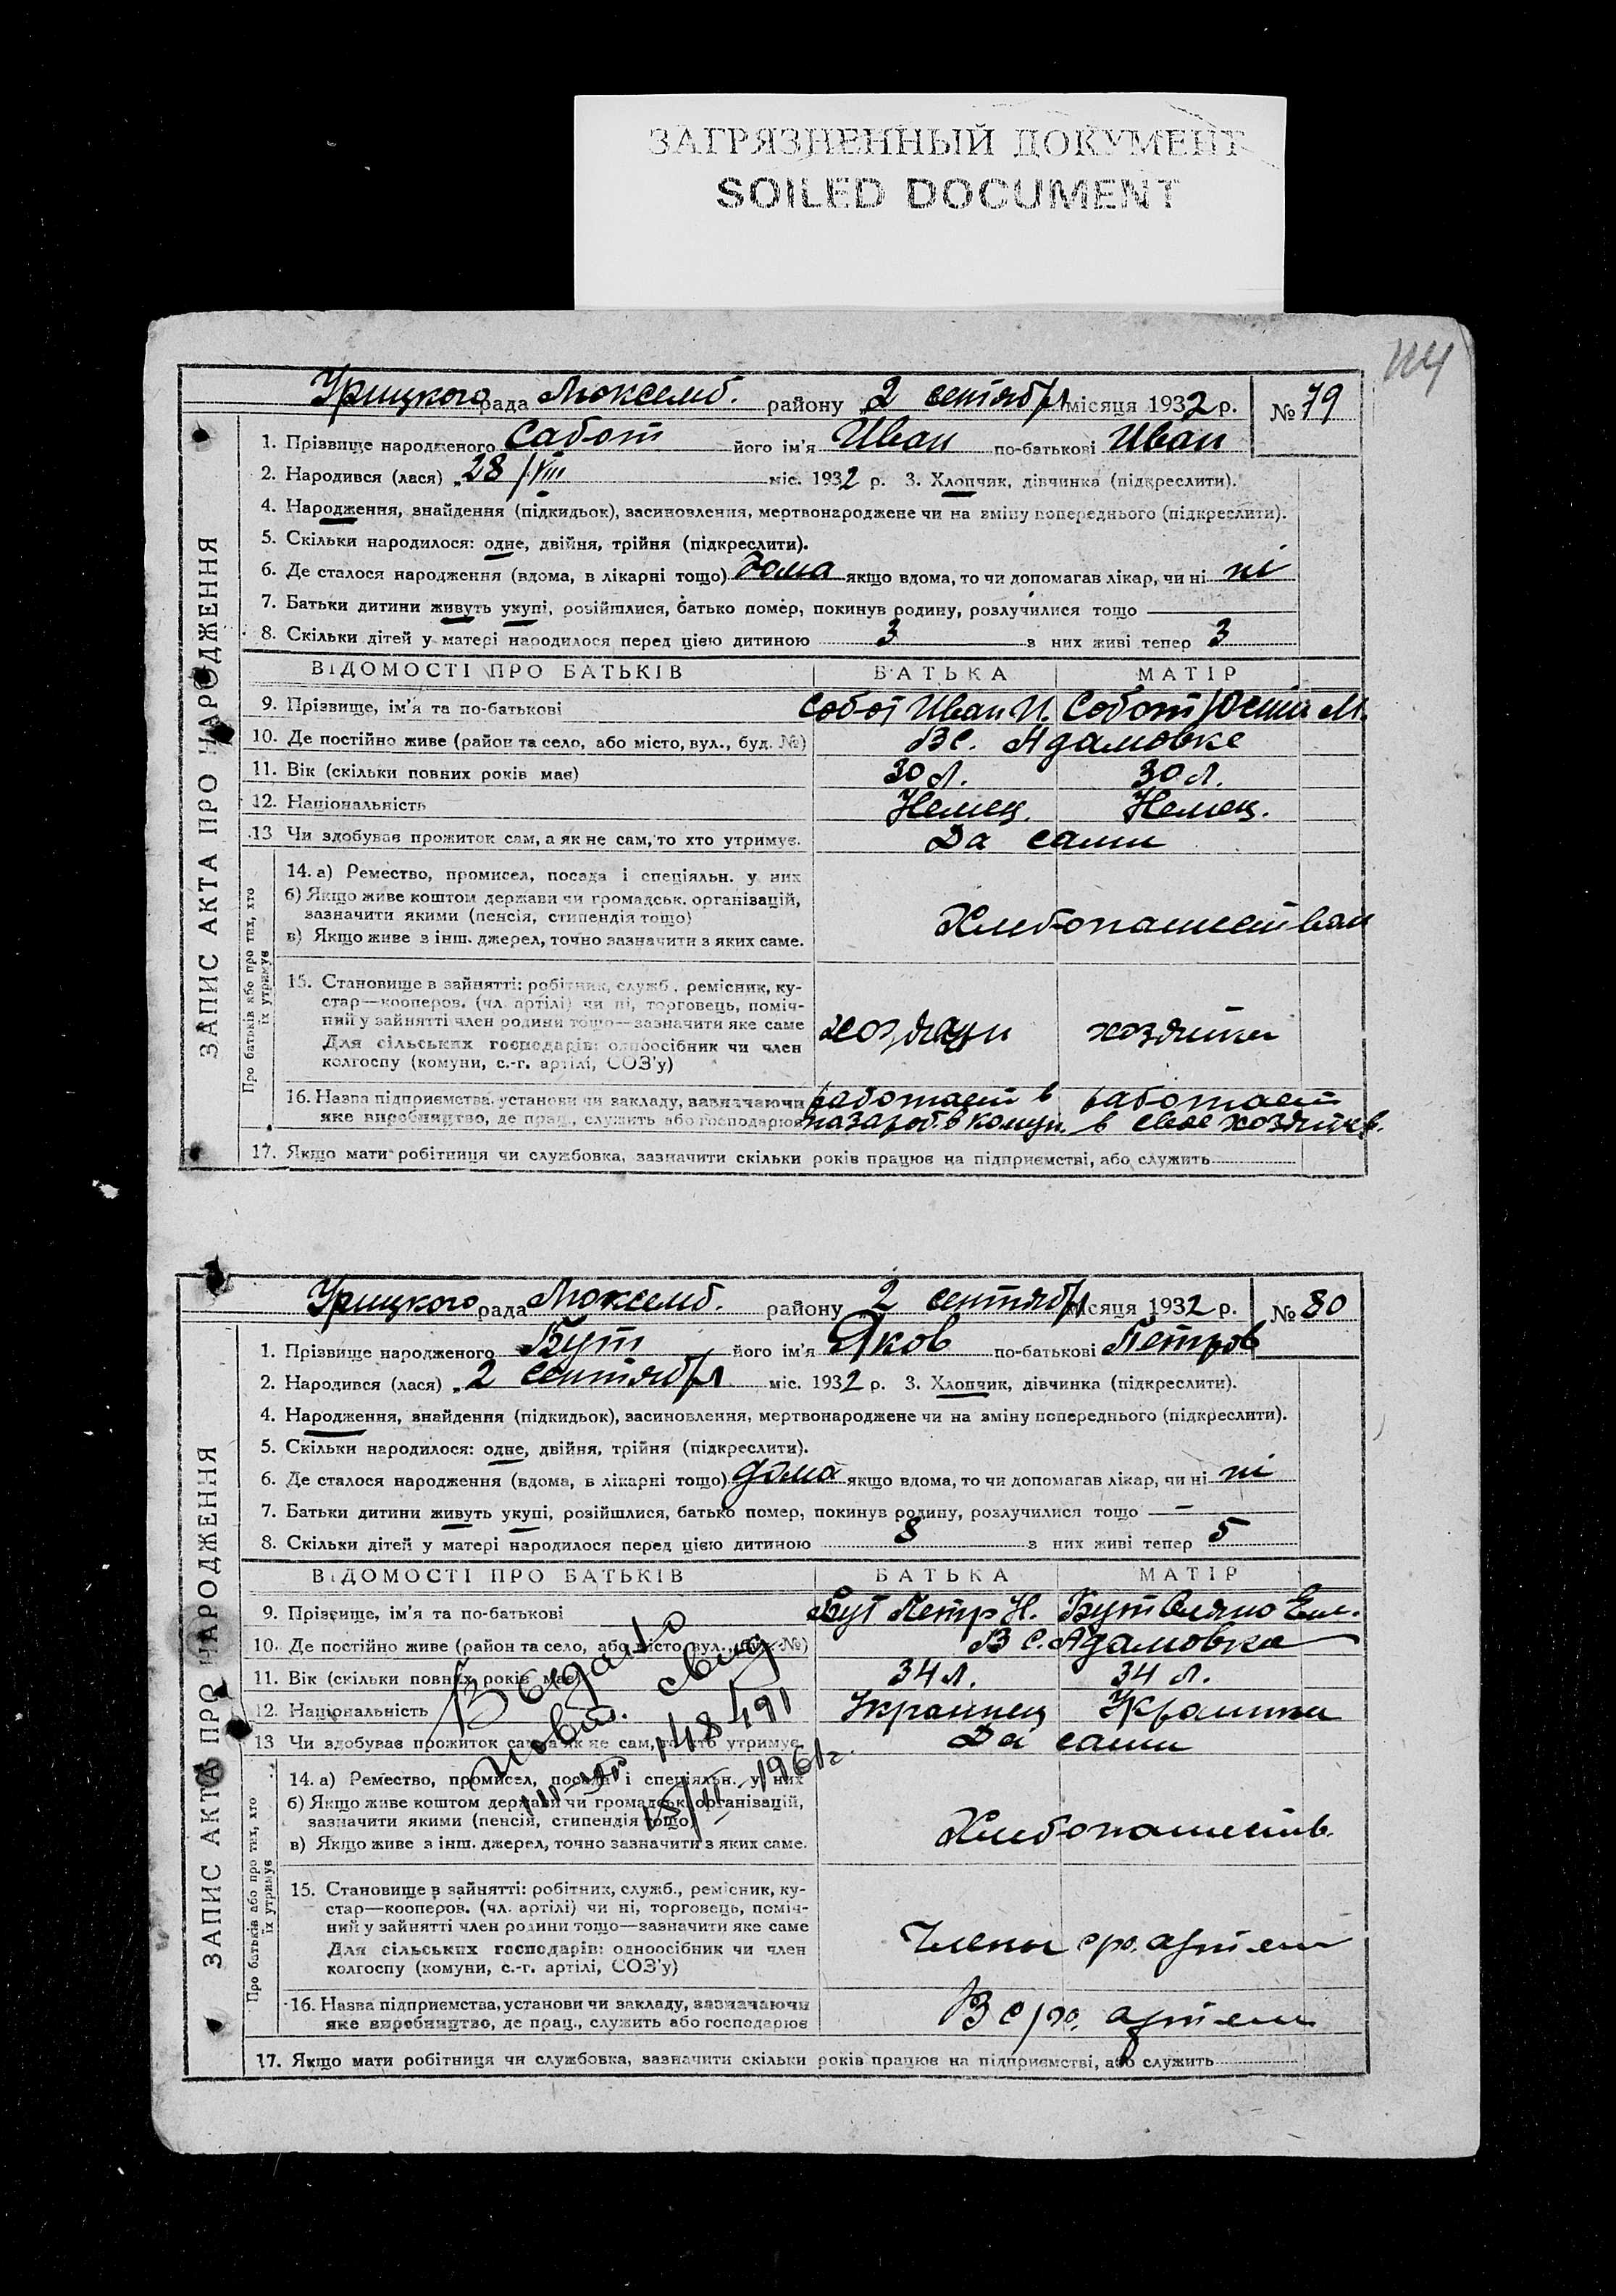 ЗАГРЯЗНЕННЫЙ ДОКУМЕНТ
SOILED DOCUMENT
114
Урицкого рада Люксемб. району „2 сентября місяця 1932 р. № 79
ЗАПИС АКТА ПРО НАРОДЖЕННЯ
1. Прізвище народженого Сабот його ім'я Иван по-батькові Иван
2. Народився (лася) „28/VIII міс. 1932 р. 3. Хлопчик, дівчинка (підкреслити).
4. Народження, знайдення (підкидьок), засиновлення, мертвонароджене чи на зміну попереднього (підкреслити).
5. Скільки народилося: одне, двійня, трійня (підкреслити).
6. Де сталося народження (вдома, в лікарні тощо) дома якщо вдома, то чи допомагав лікар, чи ні ні
7. Батьки дитини живуть укупі, розійшлися, батько помер, покинув родину, розлучилися тощо
8. Скільки дітей у матері народилося перед цією дитиною 3 з них живі тепер 3
ВІДОМОСТІ ПРО БАТЬКІВ БАТЬКА МАТІР
9. Прізвище, ім'я та по-батькові Собот Иван И. Собот М.
10. Де постійно живе (район та село, або місто, вул., буд. №) В с. Адамовке
11. Вік (скільки повних років має) 30 л. 30 л.
12. Національність Немец. Немец.
13 Чи здобуває прожиток сам, а як не сам, то хто утримує. Да сами
Про батьків або про тих, хто їх утримує
14. а) Ремество, промисел, посада і спеціяльн. у них
б) Якщо живе коштом держави чи громадськ. організацій,
зазначити якими (пенсія, стипендія тощо)
в) Якщо живе з інш. джерел, точно зазначити з яких саме.
15. Становище в зайнятті: робітник, служб., ремісник, ку-
стар—кооперов. (чл. артілі) чи ні, торговець, поміч-
ний у зайнятті член родини тощо—зазначити яке саме
Для сільських господарів: одноосібник чи член
колгоспу (комуни, с.-г. артілі, СОЗ'у)
хозяйка
16. Назва підприємства, установи чи закладу, зазначаючи работает в работает
яке виробництво, де прац., служить або господарює в свое хозяйств.
17. Якщо мати робітниця чи службовка, зазначити скільки років працює на підприємстві, або служить
Урицкого рада Люксемб. району „2 сентября місяця 1932 р. № 80
ЗАПИС АКТА ПРО НАРОДЖЕННЯ
1. Прізвище народженого Бут його ім'я Яков по-батькові Петров
2. Народився (лася) „2 сентября міс. 1932 р. 3. Хлопчик, дівчинка (підкреслити).
4. Народження, знайдення (підкидьок), засиновлення, мертвонароджене чи на зміну попереднього (підкреслити).
5. Скільки народилося: одне, двійня, трійня (підкреслити).
6. Де сталося народження (вдома, в лікарні тощо) дома якщо вдома, то чи допомагав лікар, чи ні ні
7. Батьки дитини живуть укупі, розійшлися, батько помер, покинув родину, розлучилися тощо —
8. Скільки дітей у матері народилося перед цією дитиною 8 з них живі тепер 5
ВІДОМОСТІ ПРО БАТЬКІВ БАТЬКА МАТІР
9. Прізвище, ім'я та по-батькові Бут Петр Н. Бут
10. Де постійно живе (район та село, або місто, вул., буд. №) В с. Адамовка
11. Вік (скільки повних років має) 34 л. 34 л.
12. Національність Украинец Украинка
13 Чи здобуває прожиток сам, а як не сам, то хто утримує. Да сами
Выдано
повт. свид
148491
15/III 1961г.
Про батьків або про тих, хто їх утримує
14. а) Ремество, промисел, посада і спеціяльн. у них
б) Якщо живе коштом держави чи громадськ. організацій,
зазначити якими (пенсія, стипендія тощо)
в) Якщо живе з інш. джерел, точно зазначити з яких саме.
Хлебопашеств.
15. Становище в зайнятті: робітник, служб., ремісник, ку-
стар—кооперов. (чл. артілі) чи ні, торговець, поміч-
ний у зайнятті член родини тощо—зазначити яке саме
Для сільських господарів: одноосібник чи член
колгоспу (комуни, с.-г. артілі, СОЗ'у)
Члены с/х. артели
16. Назва підприємства, установи чи закладу, зазначаючи
яке виробництво, де прац., служить або господарює
В с/х. артели
17. Якщо мати робітниця чи службовка, зазначити скільки років працює на підприємстві, або служить